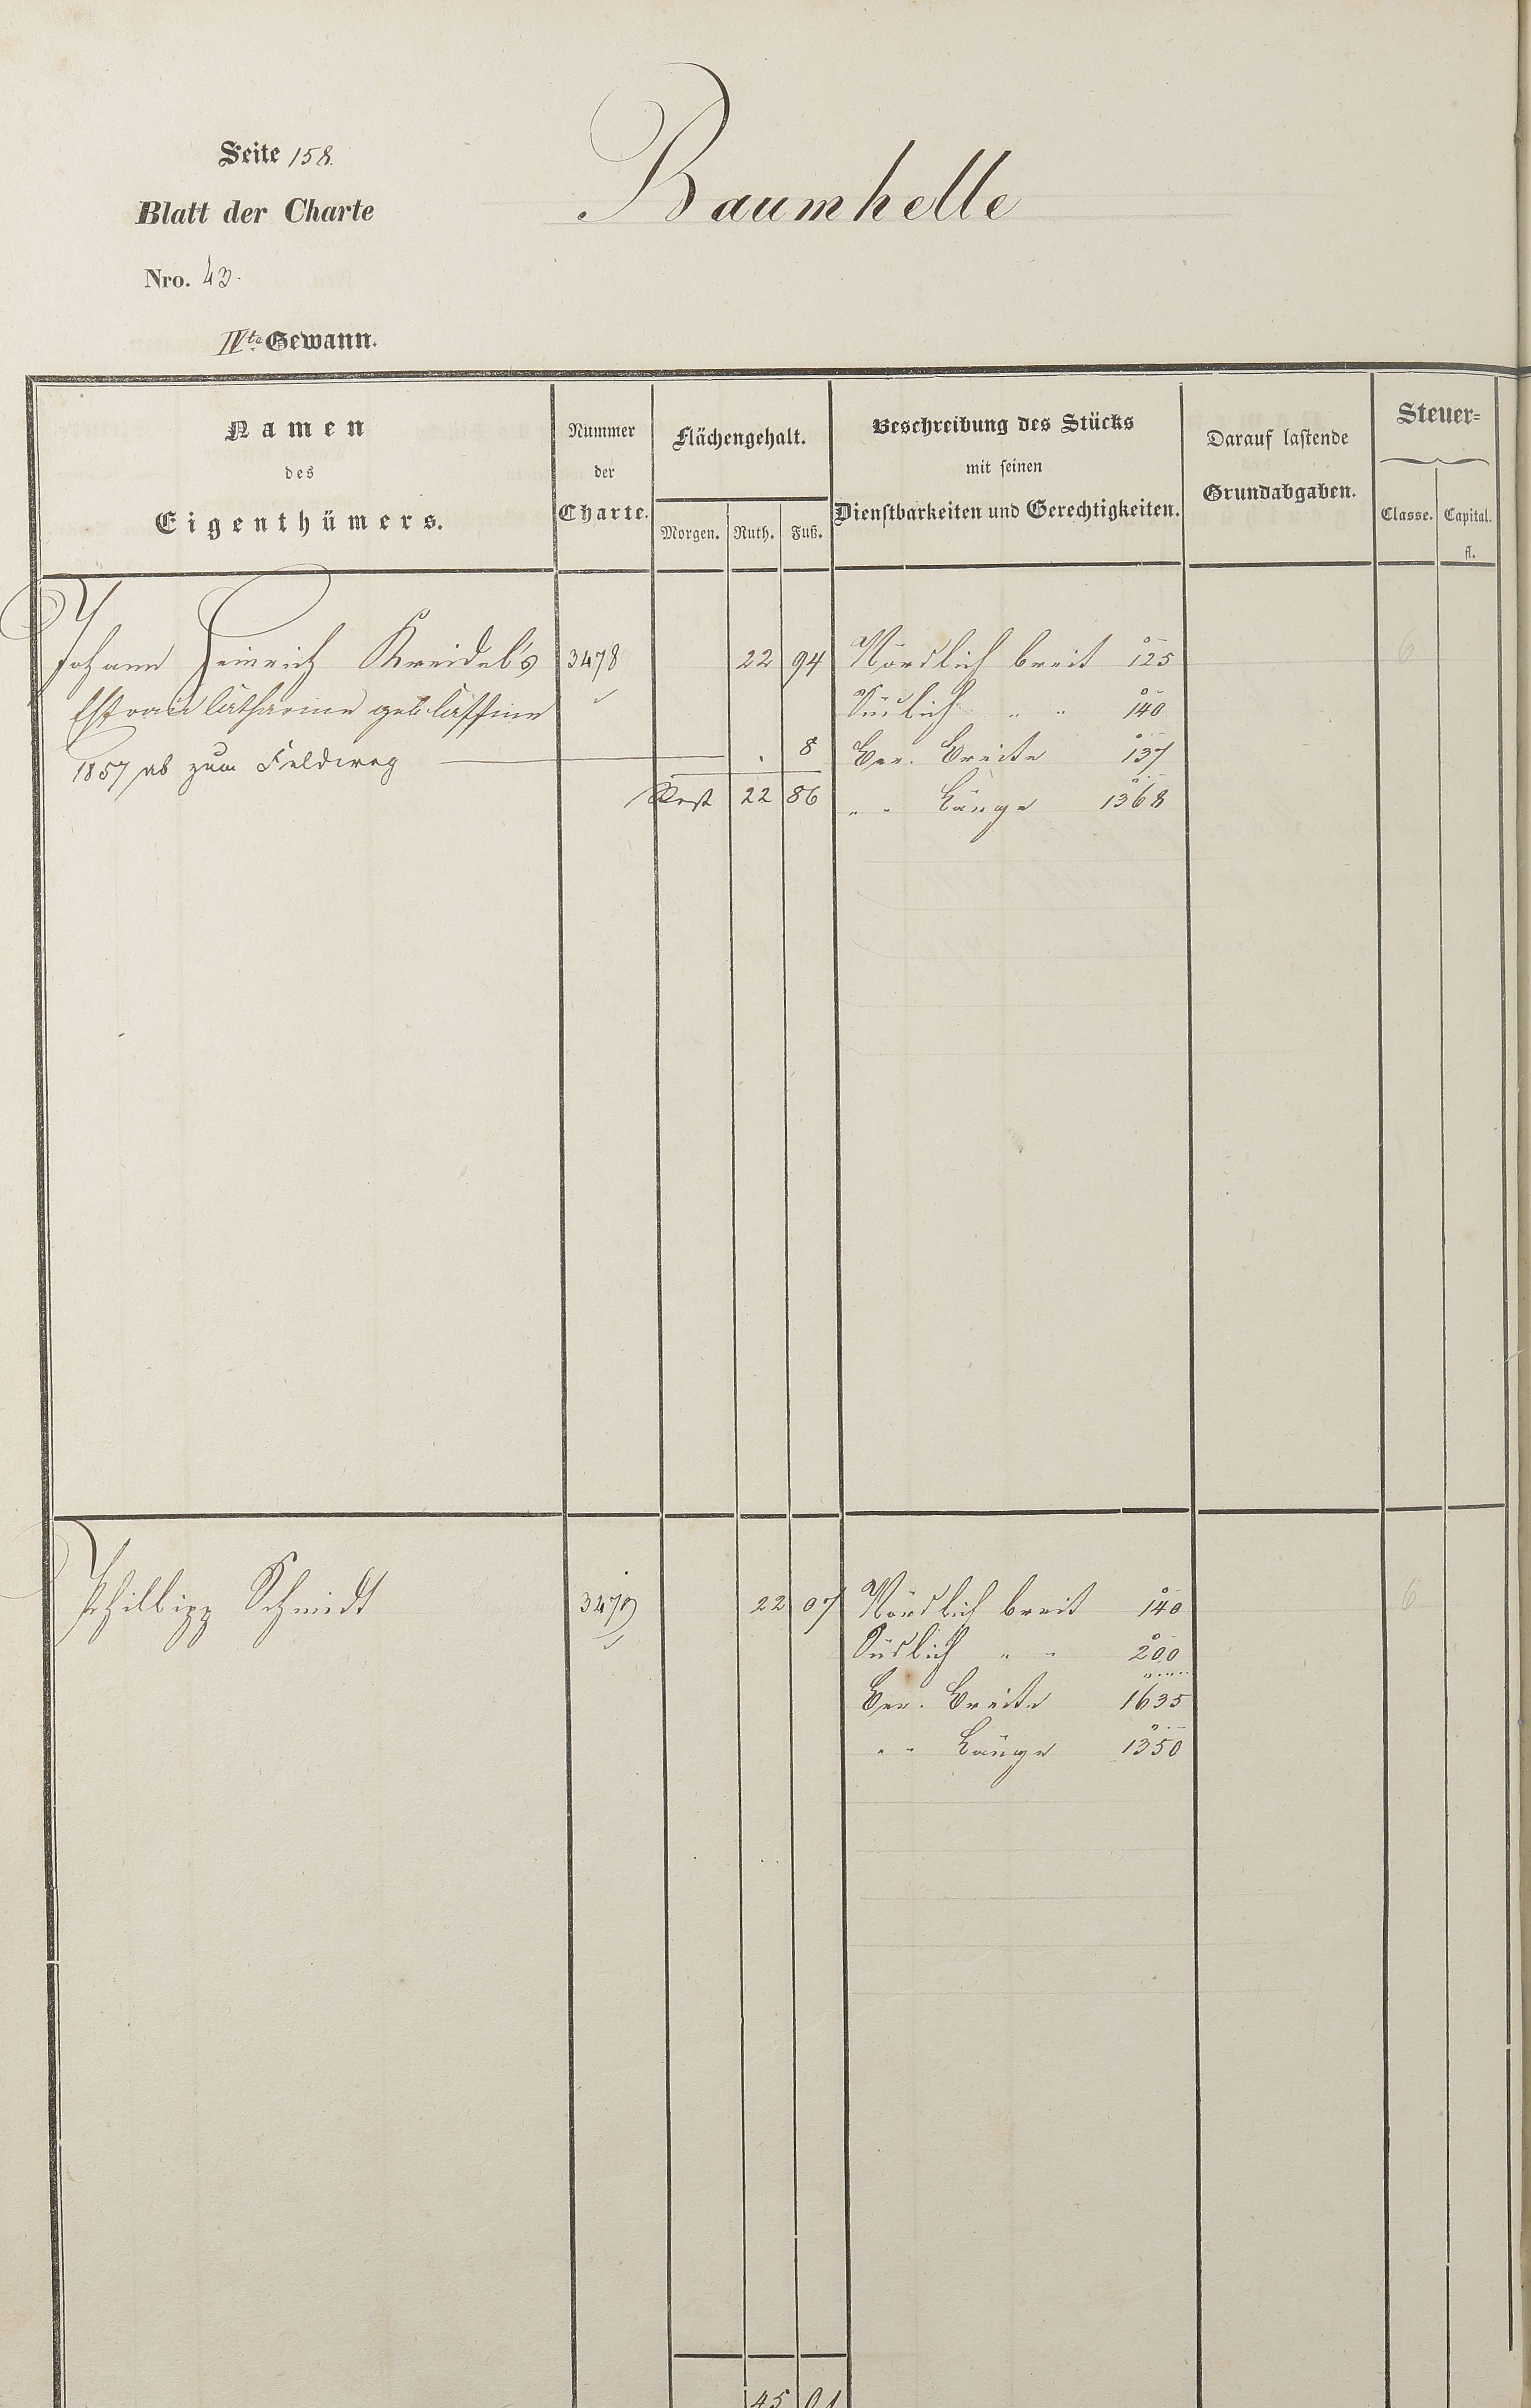 Seite 158.
Blatt der Charte
Nro. 43.
IVte Gewann.
Baumhelle
Namen
des
Eigenthümers.
Nummer
der
Charte.
Flächengehalt.
Morgen. Ruth. Fuß.
Beschreibung des Stücks
mit seinen
Dienstbarkeiten und Gerechtigkeiten.
Darauf lastende
Grundabgaben.
Steuer=
Classe. Capital.
fl.
Johann Heinrich Kreidel's 3478 22 94 Nördlich breit 125 6
Ehefrau Catharine geb. Südlich " " 140
1857 ab zum Feldweg . 8 Ber. Breite 137
Rest 22 86 " " Länge 1368
Phillipp Schmidt 3479 22 07 Nördlich breit 140 6
Südlich " " 200
Ber. Breite 1635
" " Länge 1350
45 01